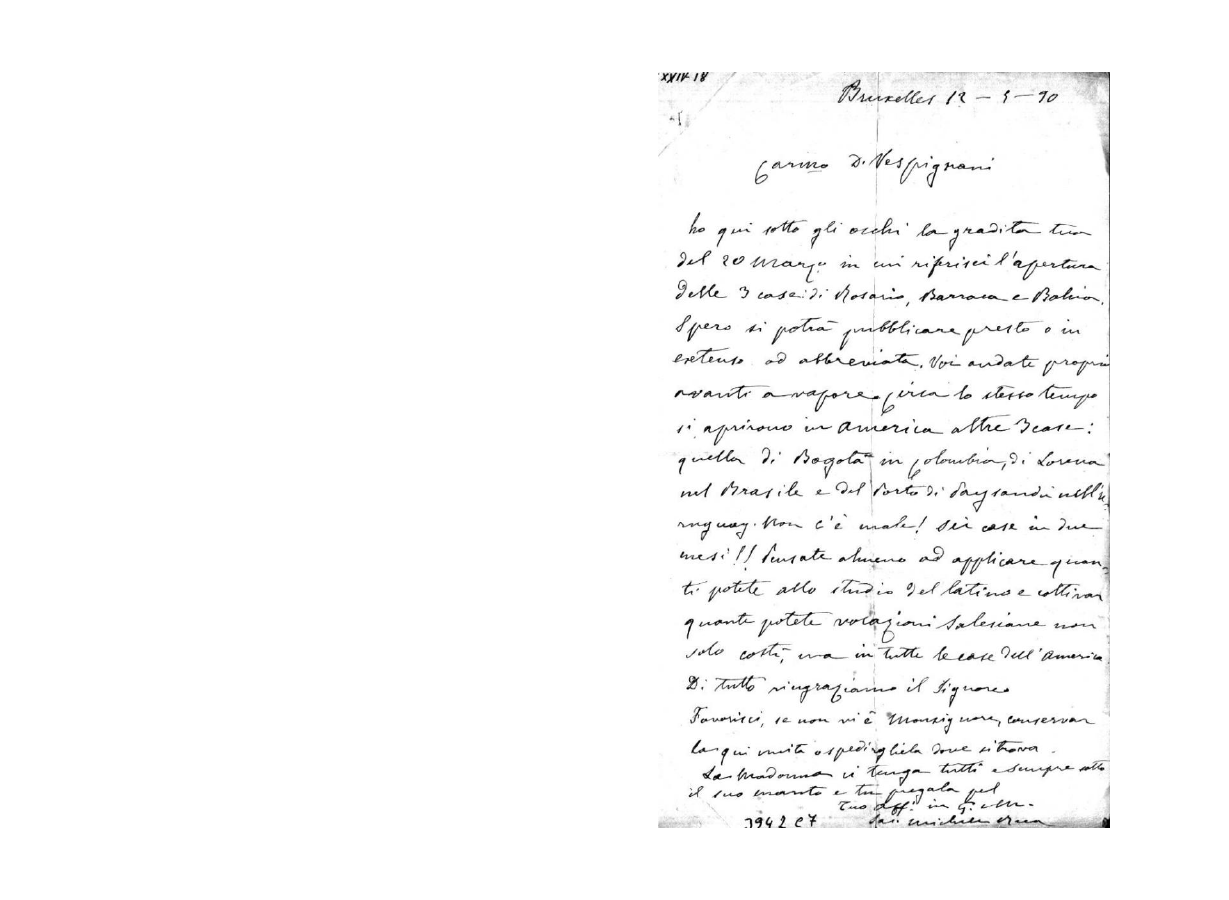 XXIV IV
Bruxelles 12 – 5 – 90
Carmo D. Vespignani
ho qui sotto gli occhi la gradita tua
del 20 Marzo in cui riferisci l'apertura
delle 3 case di Rosario, Barraca e Bahia.
Spero si potrà pubblicare presto o in
extenso od abbreviata. Voi andate propri
avanti a vapore. Circa lo stesso tempo
si aprirono in America altre 3 case:
quella di Bogotà in Colombia, di Lorena
nel Brasile e del Porto di Paysandù nell'U-
ruguay. Non c'è male! Sei case in due
mesi!! Pensate almeno ad applicare quan-
ti potete allo studio del latino e coltivar
quante potete vocazioni Salesiane non
solo costì, ma in tutte le case dell'America
Di tutto ringraziamo il Signore
Favorisci, se non vi è Monsignore, conservar
la qui unita o spedirgliela dove si trova.
La Madonna vi tenga tutti e sempre sotto
il suo manto e tu pregala pel
Tuo aff. in G. e M.
Sac. Michele Rua
3942 C7